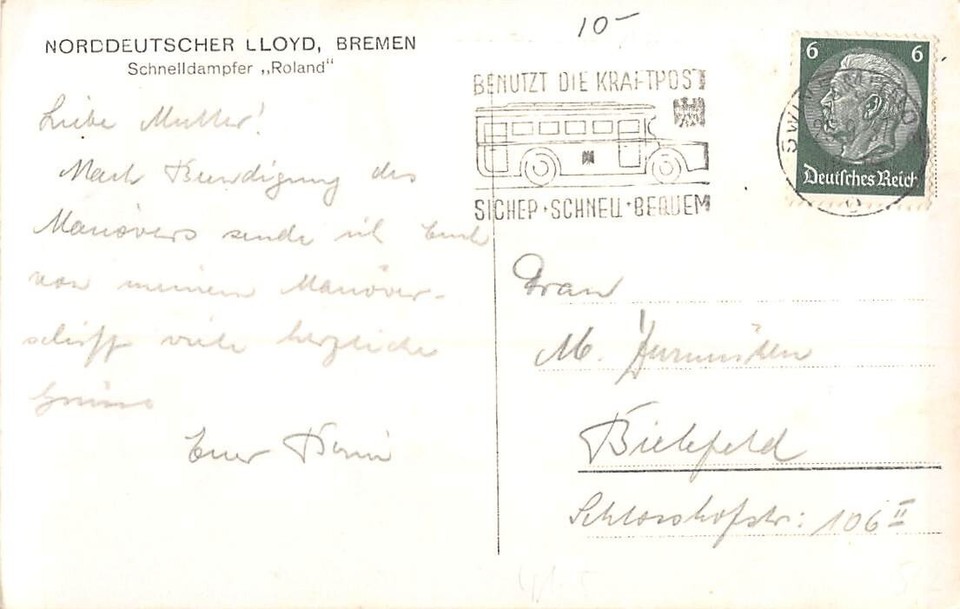 10-
NORDDEUTSCHER LLOYD, BREMEN
Schnelldampfer „Roland"
BENUTZT DIE KRAFTPOST
SICHER · SCHNELL · BEQUEM
6 6
Deutsches Reich
SWINEMÜNDE
Liebe Mutter!
Nach Beendigung des
Manövers sende ich Euch
von meinem Manöver-
schiff viele herzliche
Grüsse
Euer
Frau
M.
Bielefeld
Schlosshofstr: 106 II